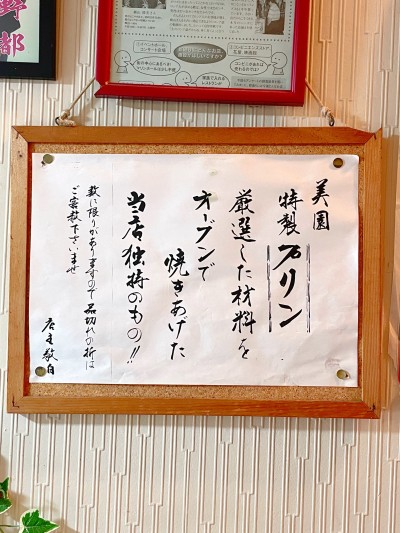 美園
特製プリン
厳選した材料を
オーブンで
焼きあげた
当店独特のもの!!
数に限りがありますので品切れの折は
ご容赦下さいませ
店主敬白
野
都